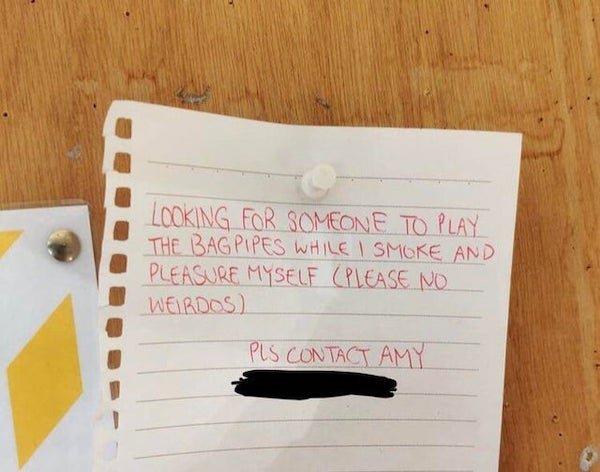 LOOKING FOR SOMEONE TO PLAY
THE BAGPIPES WHILE I SMOKE AND
PLEASURE MYSELF (PLEASE NO
WEIRDOS)
PLS CONTACT AMY